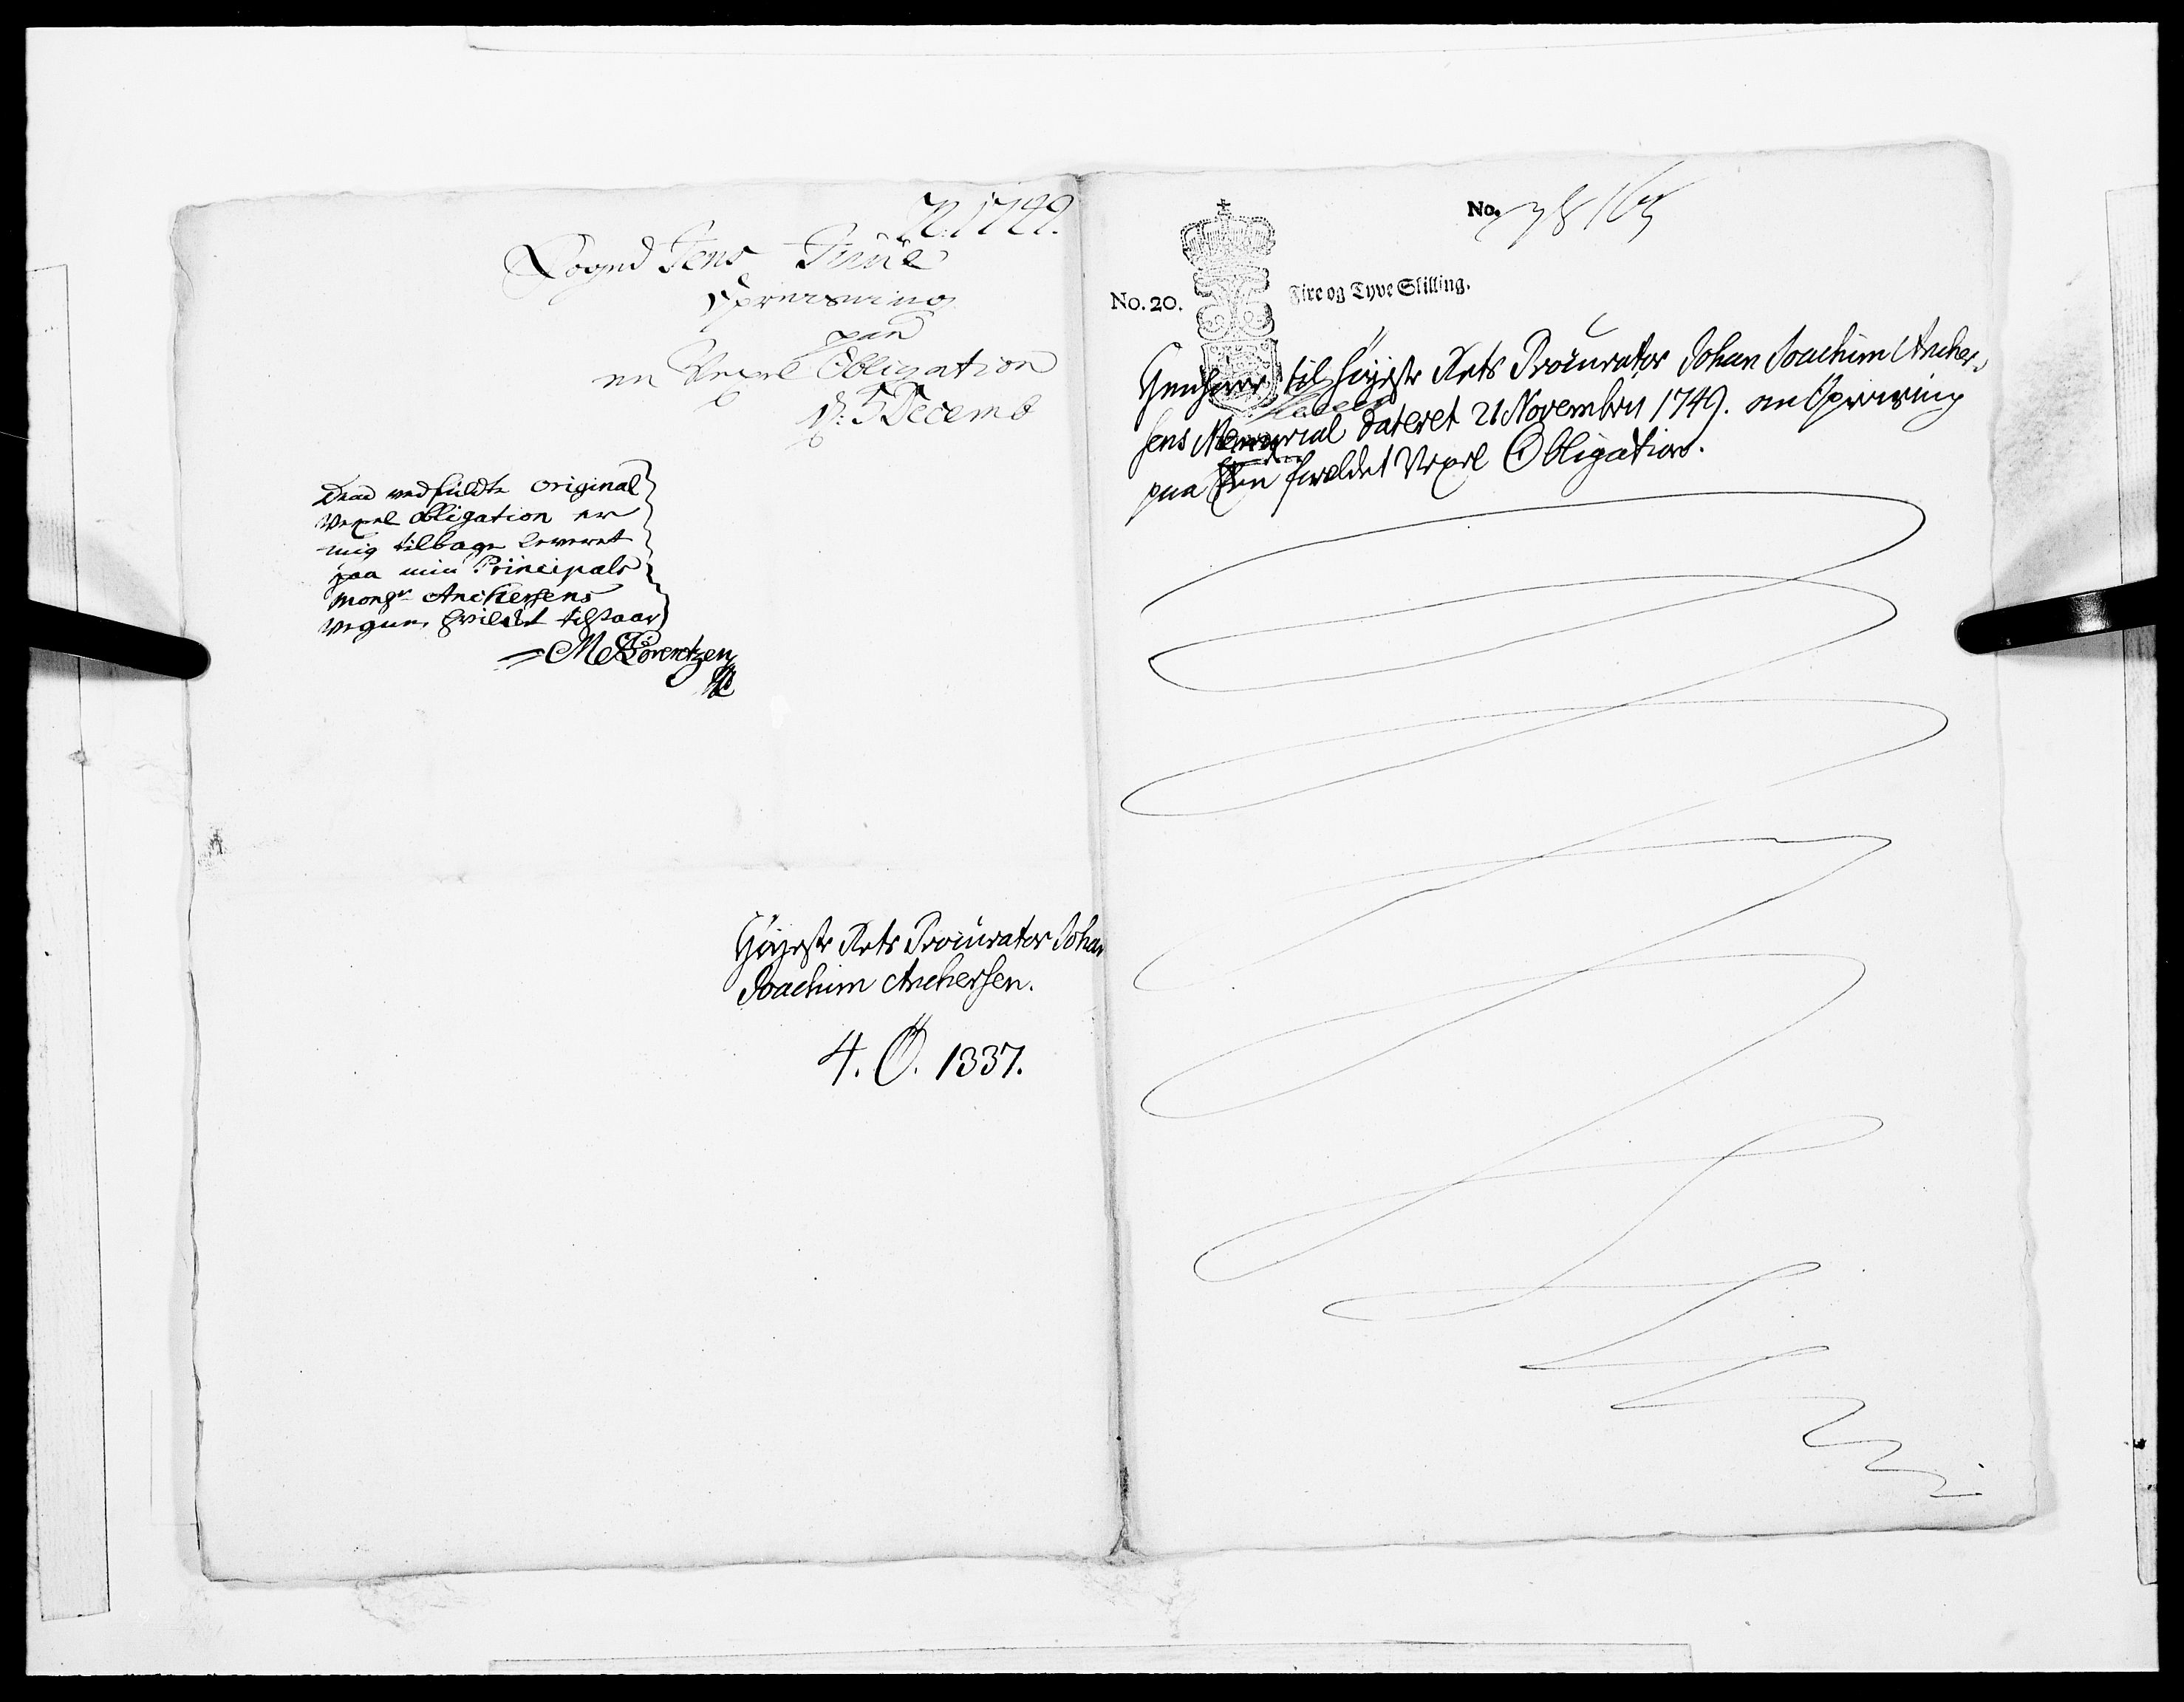 1749.
Foged Jens Juul
Opreisning
paa
en Vexel Obligation
d: 5 Decemb
Den vedfüldte original
Vexel obligation er
mig tilbage leveret
paa min Principals
Mongr Anchersens
vegne, hvilket tilstaar
M Lorentzen
Höyeste Rets Procurator Johan
Joachim Anchersen.
4. O. 1337.
No.
No. 20. Fire og Tyve Skilling.
til Höyeste Rets Procurator Johan Joachim Ancher-
sens Memorial dateret 21 Novembri 1749. om Opreisning
paa en forældet Vexel Obligation.